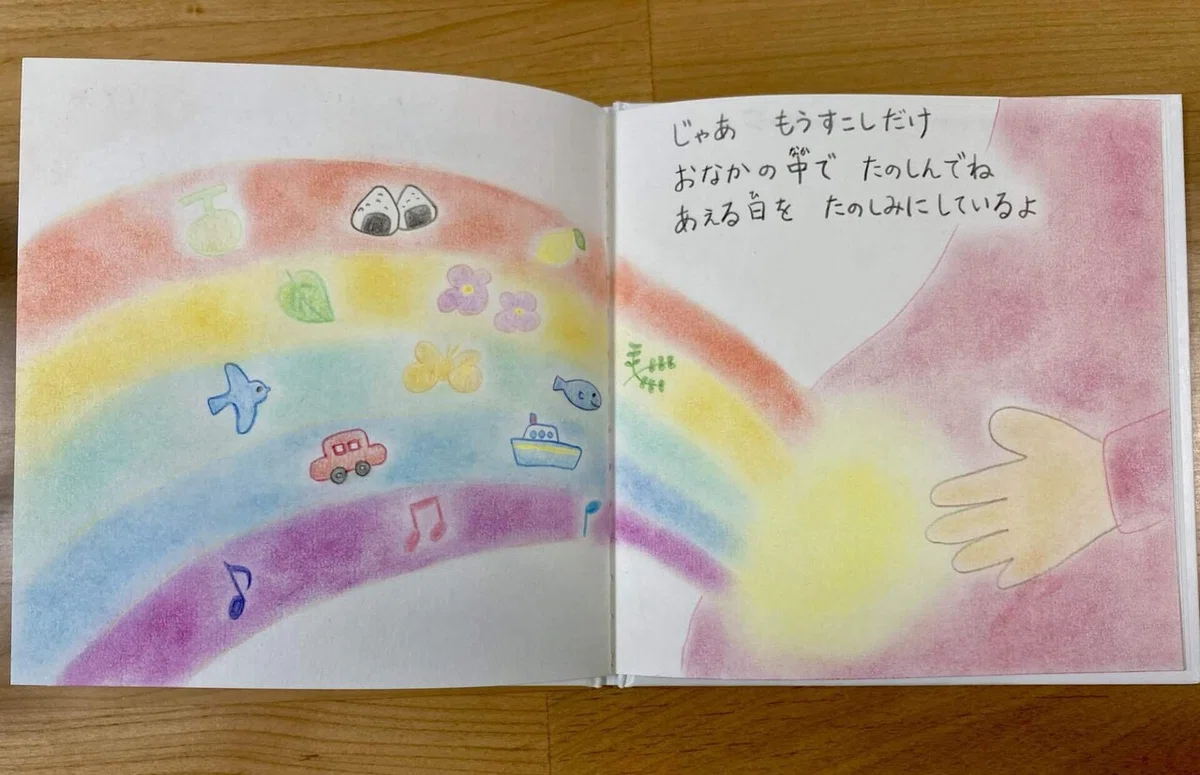 じゃあ　もうすこしだけ
おなかの中で　たのしんでね
あえる日を　たのしみにしているよ